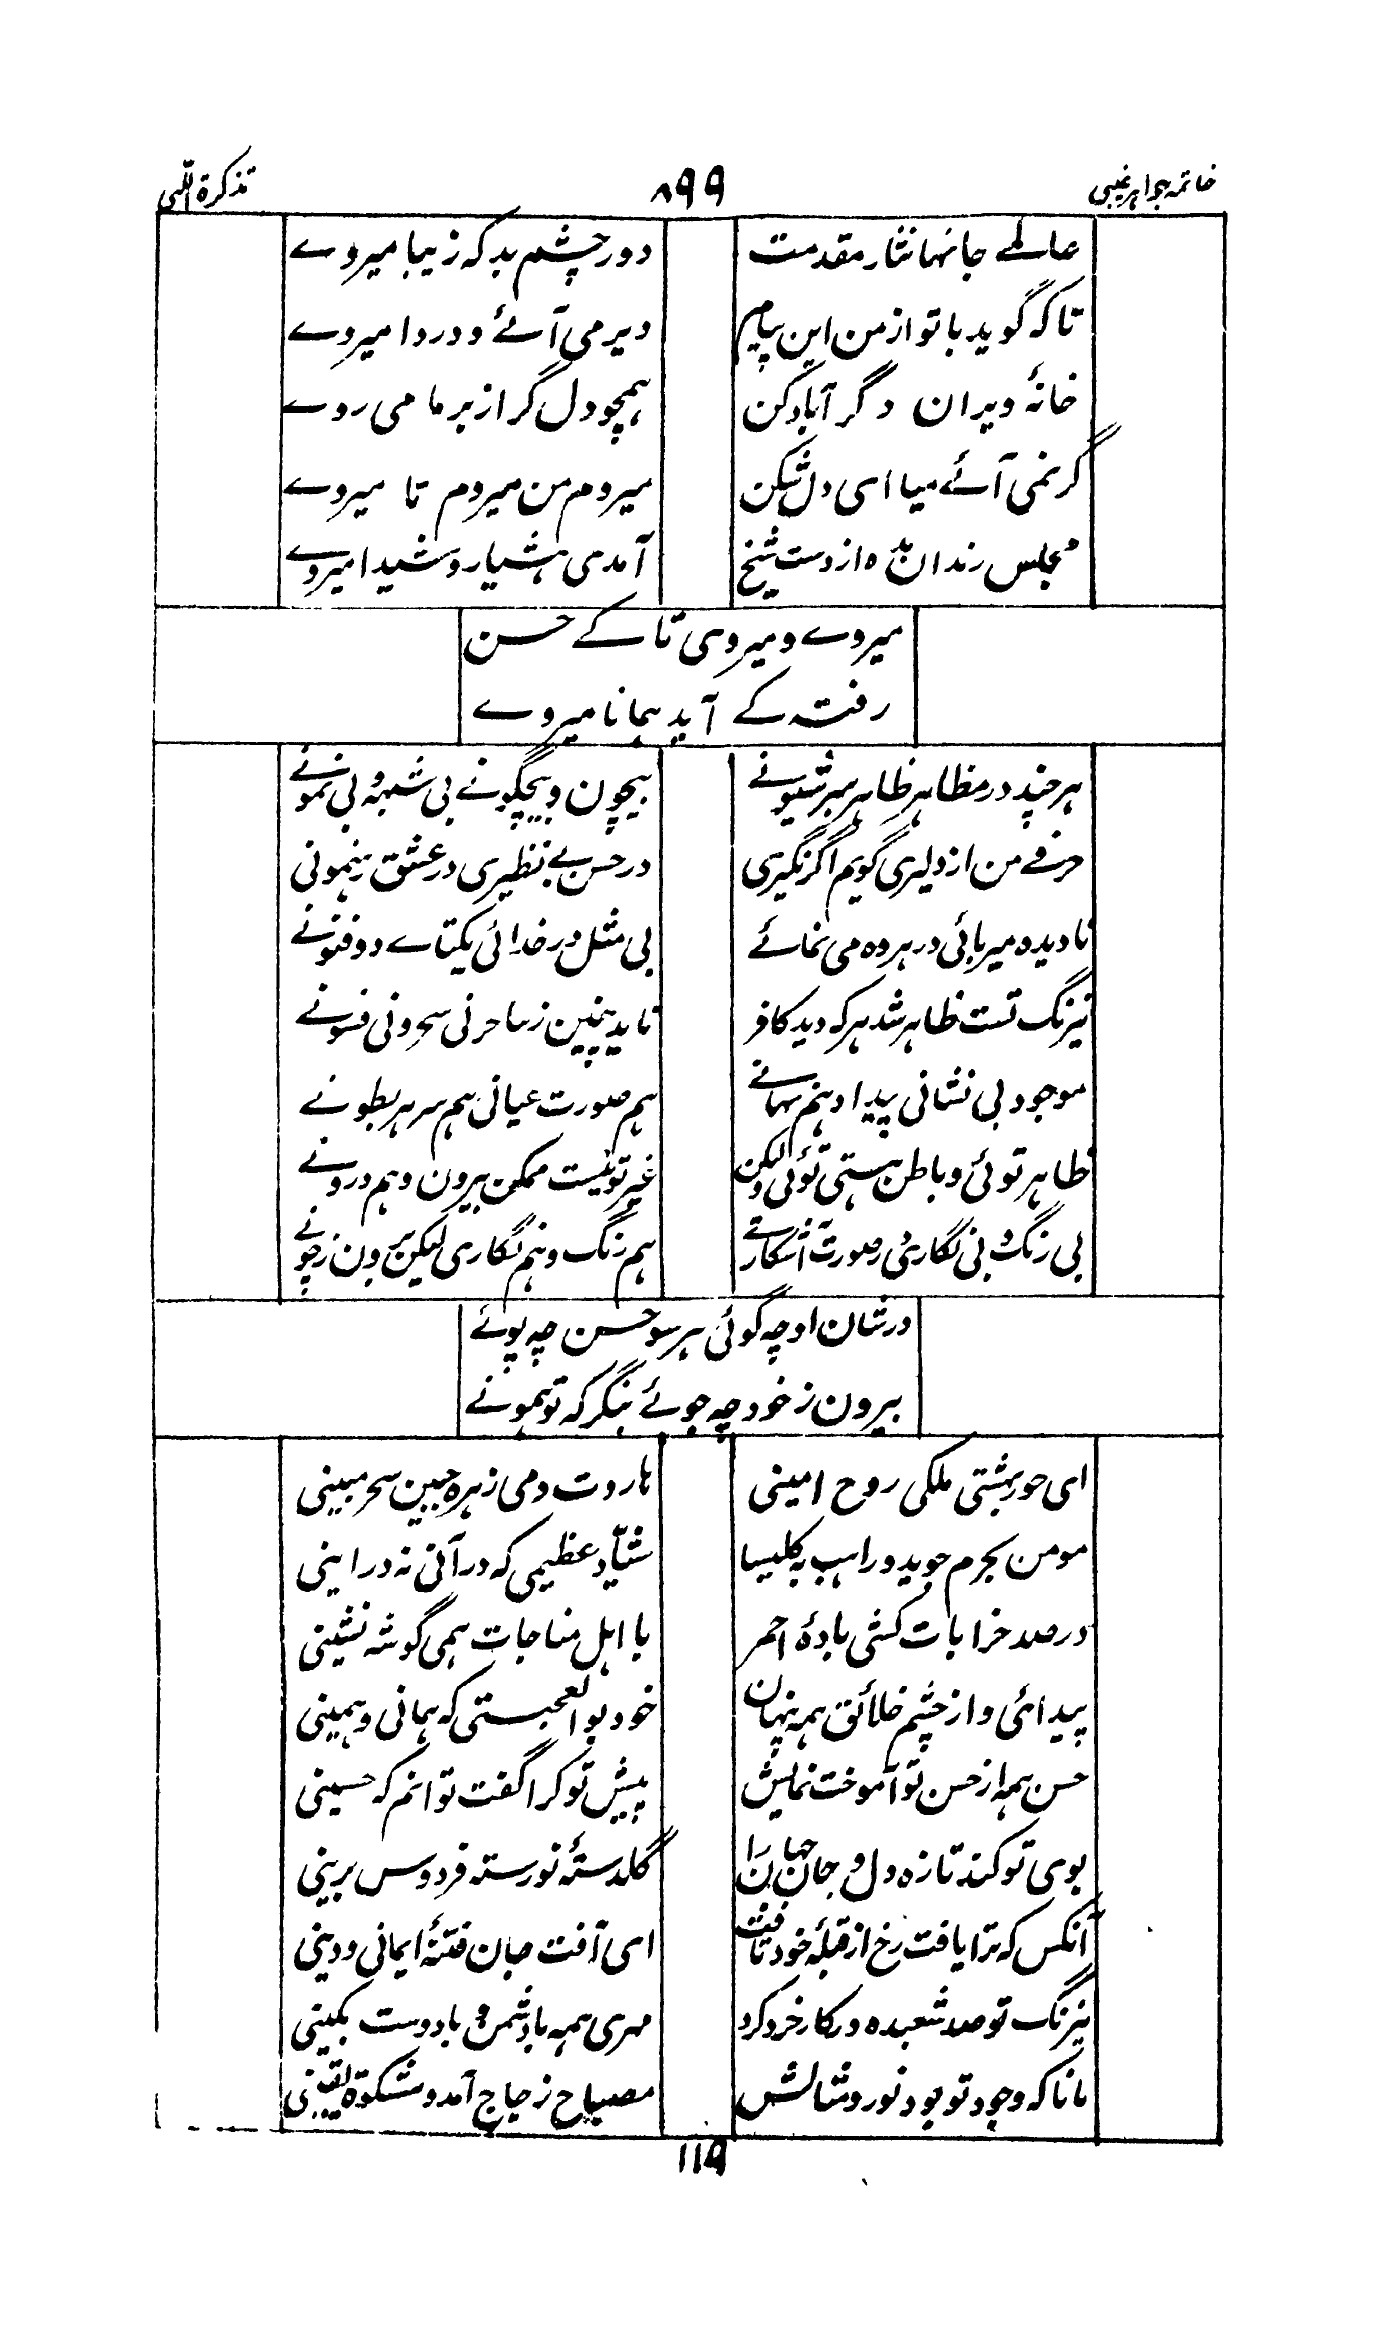 خاتمہ جواہر غیبی ۸۹۹ تذکرة اللہی
عالمے جانہا نثار مقدمت دور چشم بد کہ زیبا میروے
تا کہ گوید با تو از من این پیام دیر می آئے و دردا میروے
خانۂ ویران دگر آباد کن ہمچو دل گر از بر ما می روے
گر نمی آئے میا ای دل شکن میروم من میروم تا میروے
مجلس رندان بدہ از دست شیخ آمدی ہشیار و شیدا میروے
میروے و میروی تا کے حسن
رفتہ کے آید ہمانا میروے
ہر چند در مظاہر ظاہر بہر شیونے بیچون و بیچگونے بی شبہہ و بی نمونے
حرفے من از دلیری گویم اگر نگیری در حسن بے نظیری در عشق رہنمونی
نادیدہ میربائی در پردہ می نمائے بی مثل در خدائی یکتاے ذوفنونے
نیرنگ تست ظاہر شد ہر کہ دید کافر ناید چنین ز ساحر نی سحر و نی فسونے
موجود بی نشانی پیدا و ہم نہانے ہم صورت عیانی ہم سر ہر بطونے
ظاہر توئی و باطن ہستی توئی ولیکن غیر تو نیست ممکن بیرون و ہم درونے
بی رنگ و بی نگاری در صورت آشکارتے ہم رنگ و ہم نگاری لیکن برون ز چونے
در شان او چہ گوئی ہر سو حسن چہ پوئے
بیرون ز خود چہ جوئے بنگر کہ تو ہمونے
ای حور بہشتی ملکی روح امینی ہاروت دمی زہرہ جبین سحر مبینی
مومن بحرم جوید و راہب بہ کلیسا شیّاد عظیمی کہ در آنی نہ در اینی
در صدر خرابات کشی بادۂ احمر با اہل مناجات ہمی گوشہ نشینی
پیدائی و از چشم خلائق ہمہ پنہان خود بوالعجبستی کہ ہمانی و ہمینی
حسن ہمہ از حسن تو آموخت نمایش پیش تو کرا گفت توانم کہ حسینی
بوی تو کند تازہ دل و جان جہان را گلدستۂ نورستہ فردوس برینی
آنکس کہ ترا یافت رخ از قبلۂ خود تافت ای آفت جان فتنۂ ایمانی و دینی
نیرنگ تو صد شعبدہ در کار خرد کرد مہری ہمہ با دشمن و با دوست بکینی
مانا کہ وجود تو بود نور و مثالش مصباح زجاج آمد و مشکوة یقینی
۱۱۹